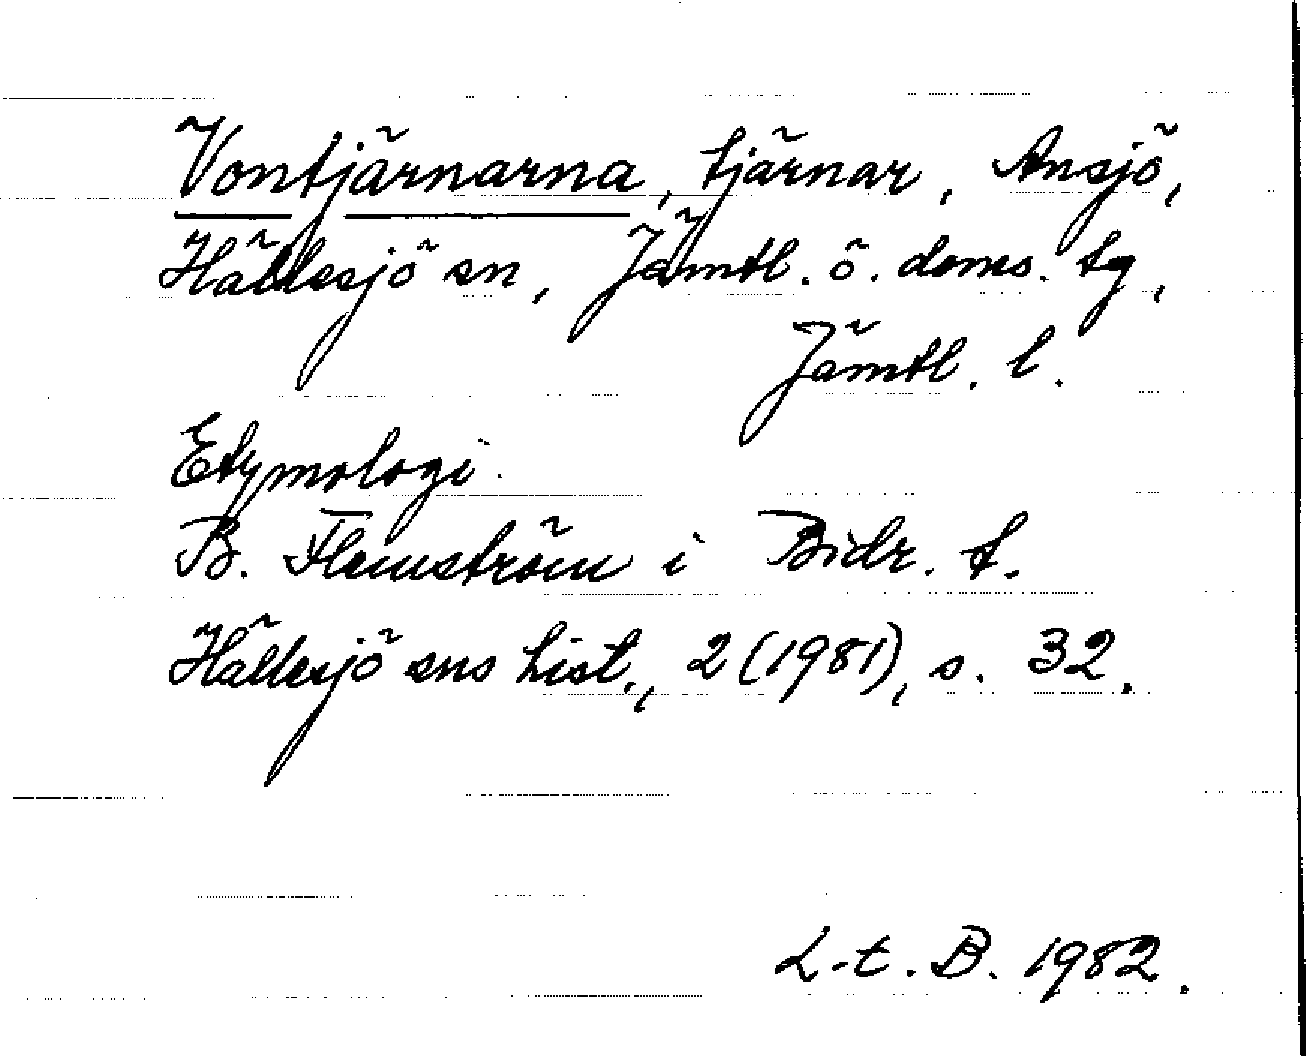 Vontjärnarna, tjärnar, Ansjö,
Hällesjö sn, Jämtl. ö. doms. tg,
Jämtl. l.
Etymologi.
B. Flemström i Bidr. t.
Hällesjö sns hist., 2 (1981), s. 32.
L-t. B. 1982.